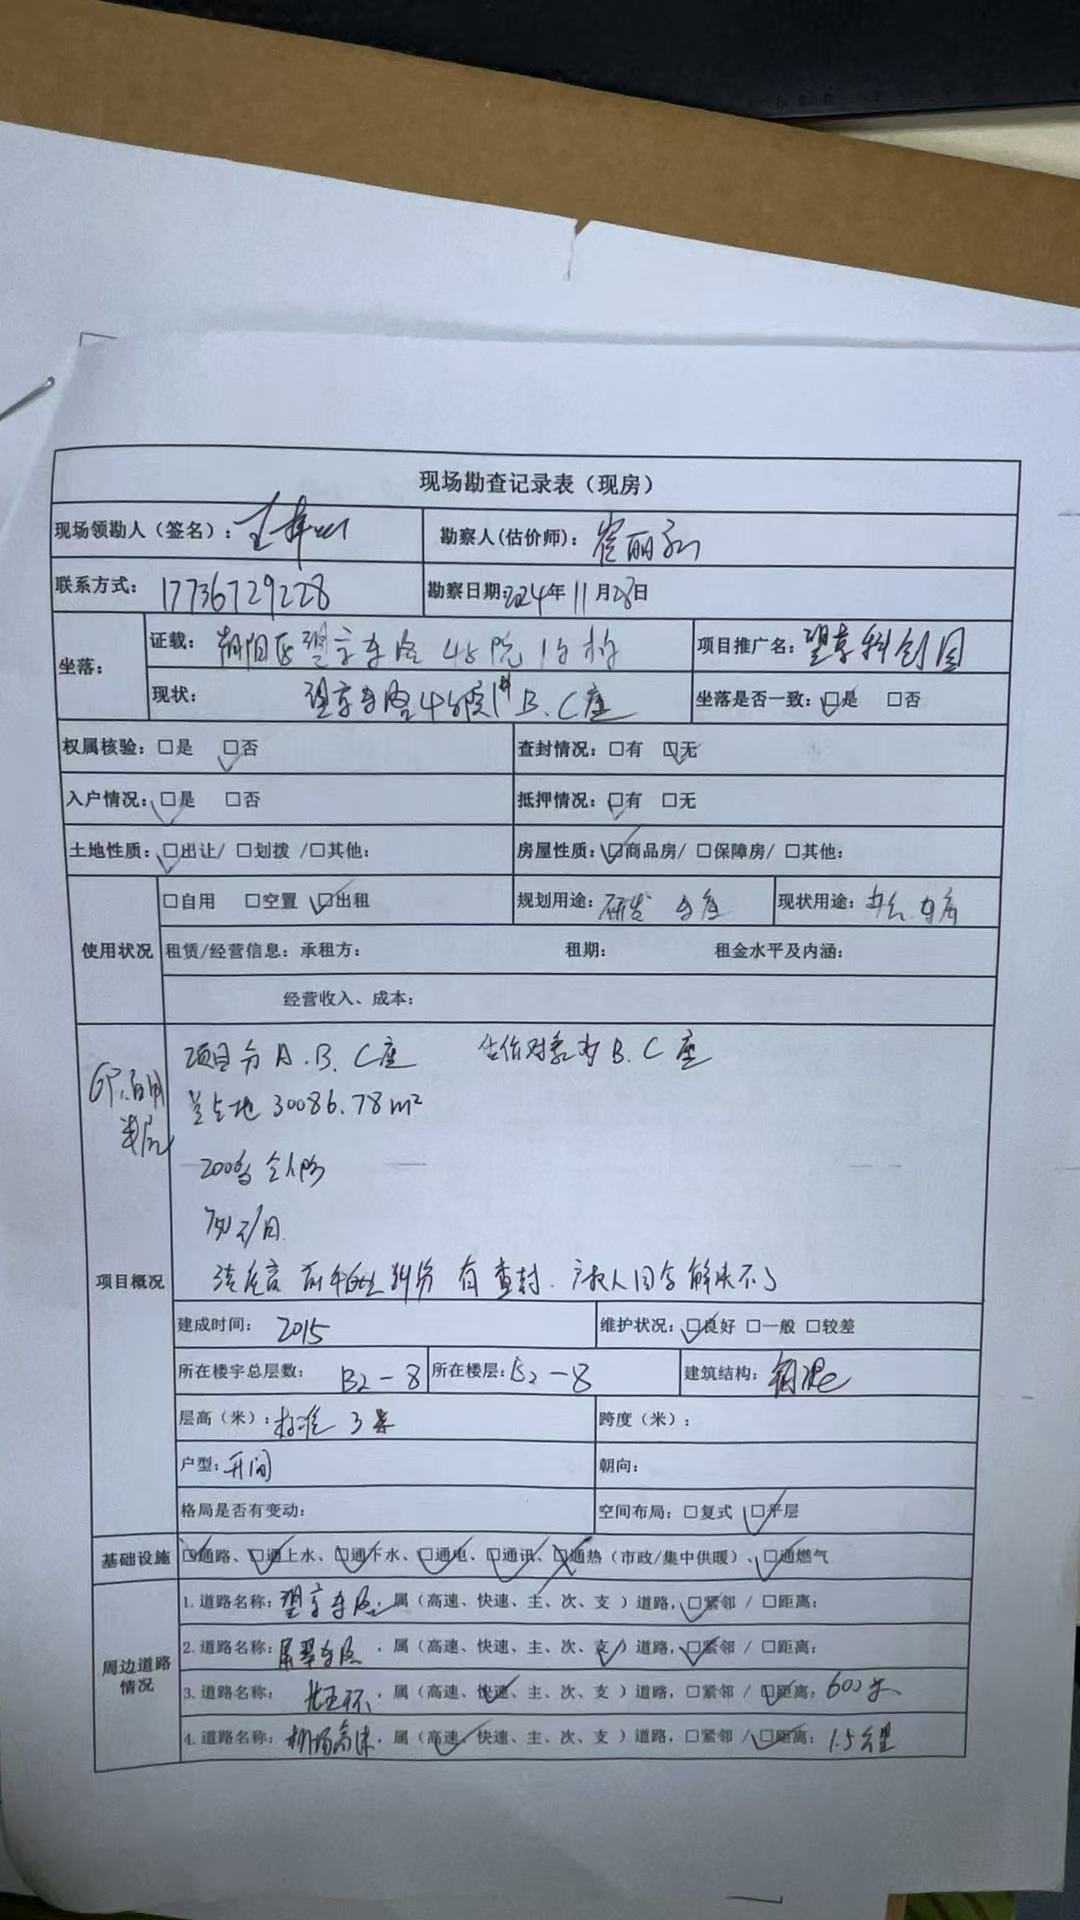 现场勘查记录表（现房）
现场领勘人（签名）： 勘察人(估价师)：崔丽
联系方式：17736729228 勘察日期：2024年11月28日
坐落： 证载：朝阳区望京东路4号院1号楼 项目推广名：望京科创园
现状：望京东路4号院1# B、C座 坐落是否一致：☑是 □否
权属核验：□是 ☑否 查封情况：□有 ☑无
入户情况：☑是 □否 抵押情况：☑有 □无
土地性质：☑出让/ □划拨 /□其他： 房屋性质：☑商品房/ □保障房/ □其他：
使用状况 □自用 □空置 ☑出租 规划用途：研发 车库 现状用途：办公、车库
租赁/经营信息：承租方： 租期： 租金水平及内涵：
经营收入、成本：
项目概况
项目分A、B、C座 估价对象为B、C座
总占地30086.78m²
200多个
有查封
建成时间：2015 维护状况：☑良好 □一般 □较差
所在楼宇总层数：B2－8 所在楼层：B2－8 建筑结构：钢混
层高（米）：标准 3米 跨度（米）：
户型：开间 朝向：
格局是否有变动： 空间布局：□复式 ☑平层
基础设施 ☑通路、☑通上水、☑通下水、☑通电、☑通讯、☒通热（市政/集中供暖）、☑通燃气
周边道路情况
1.道路名称：望京东路，属（高速、快速、主、次、支 ）道路，☑紧邻 / □距离：
2.道路名称：屏翠东路，属（高速、快速、主、次、支√）道路，☑紧邻 / □距离：
3.道路名称：北五环，属（高速、快速√、主、次、支 ）道路，□紧邻 / ☑距离：600米
4.道路名称：机场高速，属（高速√、快速、主、次、支 ）道路，□紧邻 / ☑距离：1.5公里